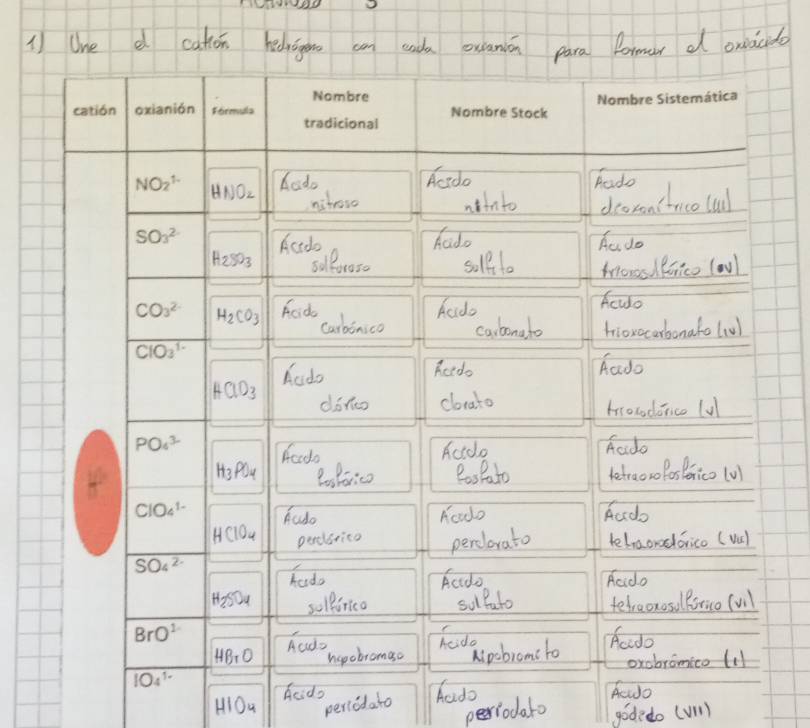 1) Une el catión hidrógeno con cada oxianión para formar el oxiácido
catión oxianión Fórmula Nombre tradicional Nombre Stock Nombre Sistemática
NO₂¹⁻ HNO₂ Ácido nitroso Ácido nitrito Ácido dioxonítrico (III)
SO₃²⁻ H₂SO₃ Ácido sulfuroso Ácido sulfito Ácido trioxosulfúrico (IV)
CO₃²⁻ H₂CO₃ Ácido carbónico Ácido carbonato Ácido trioxocarbonato (IV)
ClO₃¹⁻ HClO₃ Ácido clórico Ácido clorato Ácido trioxoclórico (V)
PO₄³⁻ H₃PO₄ Ácido fosfórico Ácido fosfato Ácido tetraoxofosfórico (V)
ClO₄¹⁻ HClO₄ Ácido perclórico Ácido perclorato Ácido tetraoxoclórico (VII)
SO₄²⁻ H₂SO₄ Ácido sulfúrico Ácido sulfato Ácido tetraoxosulfúrico (VI)
BrO¹⁻ HBrO Ácido hipobromoso Ácido hipobromito Ácido oxobrómico (I)
IO₄¹⁻ HIO₄ Ácido periódato Ácido periodato Ácido yódido (VII)